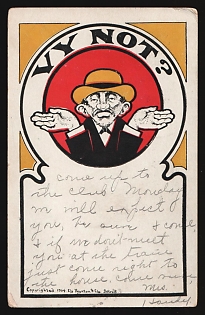 VY NOT?
come up to
the club Monday
we will expect
you, be sure & come
& if we don't meet
you at the train
just come right to
the house. come
Mrs.
Copyrighted 1904
Detroit